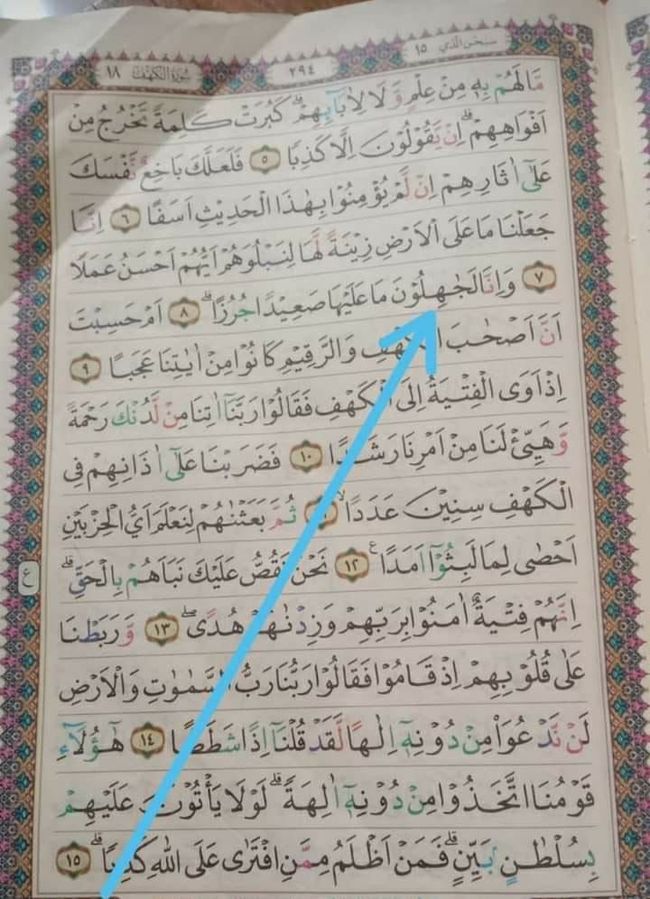 سبحن الذي ١٥
٢٩٤
سورة الكهف ١٨
مَالَهُمْ بِهٖ مِنْ عِلْمٍ وَّلَا لِاٰبَآىِٕهِمْۗ كَبُرَتْ كَلِمَةً تَخْرُجُ مِنْ
اَفْوَاهِهِمْۗ اِنْ يَّقُوْلُوْنَ اِلَّا كَذِبًا ٥ فَلَعَلَّكَ بَاخِعٌ نَّفْسَكَ
عَلٰٓى اٰثَارِهِمْ اِنْ لَّمْ يُؤْمِنُوْا بِهٰذَا الْحَدِيْثِ اَسَفًا ٦ اِنَّا
جَعَلْنَا مَا عَلَى الْاَرْضِ زِيْنَةً لَّهَا لِنَبْلُوَهُمْ اَيُّهُمْ اَحْسَنُ عَمَلًا
٧ وَاِنَّا لَجٰعِلُوْنَ مَا عَلَيْهَا صَعِيْدًا جُرُزًاۗ ٨ اَمْ حَسِبْتَ
اَنَّ اَصْحٰبَ الْكَهْفِ وَالرَّقِيْمِ كَانُوْا مِنْ اٰيٰتِنَا عَجَبًا ٩
اِذْ اَوَى الْفِتْيَةُ اِلَى الْكَهْفِ فَقَالُوْا رَبَّنَآ اٰتِنَا مِنْ لَّدُنْكَ رَحْمَةً
وَّهَيِّئْ لَنَا مِنْ اَمْرِنَا رَشَدًا ١٠ فَضَرَبْنَا عَلٰٓى اٰذَانِهِمْ فِى
الْكَهْفِ سِنِيْنَ عَدَدًاۙ ثُمَّ بَعَثْنٰهُمْ لِنَعْلَمَ اَيُّ الْحِزْبَيْنِ
اَحْصٰى لِمَا لَبِثُوْٓا اَمَدًا ࣖ ١٢ نَحْنُ نَقُصُّ عَلَيْكَ نَبَاَهُمْ بِالْحَقِّۗ
ع
اِنَّهُمْ فِتْيَةٌ اٰمَنُوْا بِرَبِّهِمْ وَزِدْنٰهُمْ هُدًىۖ ١٣ وَّرَبَطْنَا
عَلٰى قُلُوْبِهِمْ اِذْ قَامُوْا فَقَالُوْا رَبُّنَا رَبُّ السَّمٰوٰتِ وَالْاَرْضِ
لَنْ نَّدْعُوَا۟ مِنْ دُوْنِهٖٓ اِلٰهًا لَّقَدْ قُلْنَآ اِذًا شَطَطًا ١٤ هٰٓؤُلَاۤءِ
قَوْمُنَا اتَّخَذُوْا مِنْ دُوْنِهٖٓ اٰلِهَةًۗ لَوْلَا يَأْتُوْنَ عَلَيْهِمْ
بِسُلْطٰنٍۢ بَيِّنٍۗ فَمَنْ اَظْلَمُ مِمَّنِ افْتَرٰى عَلَى اللّٰهِ كَذِبًاۗ ١٥